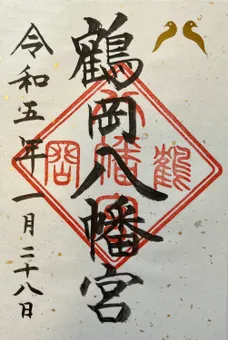 鶴岡八幡宮
令和五年一月二十八日
鶴
岡